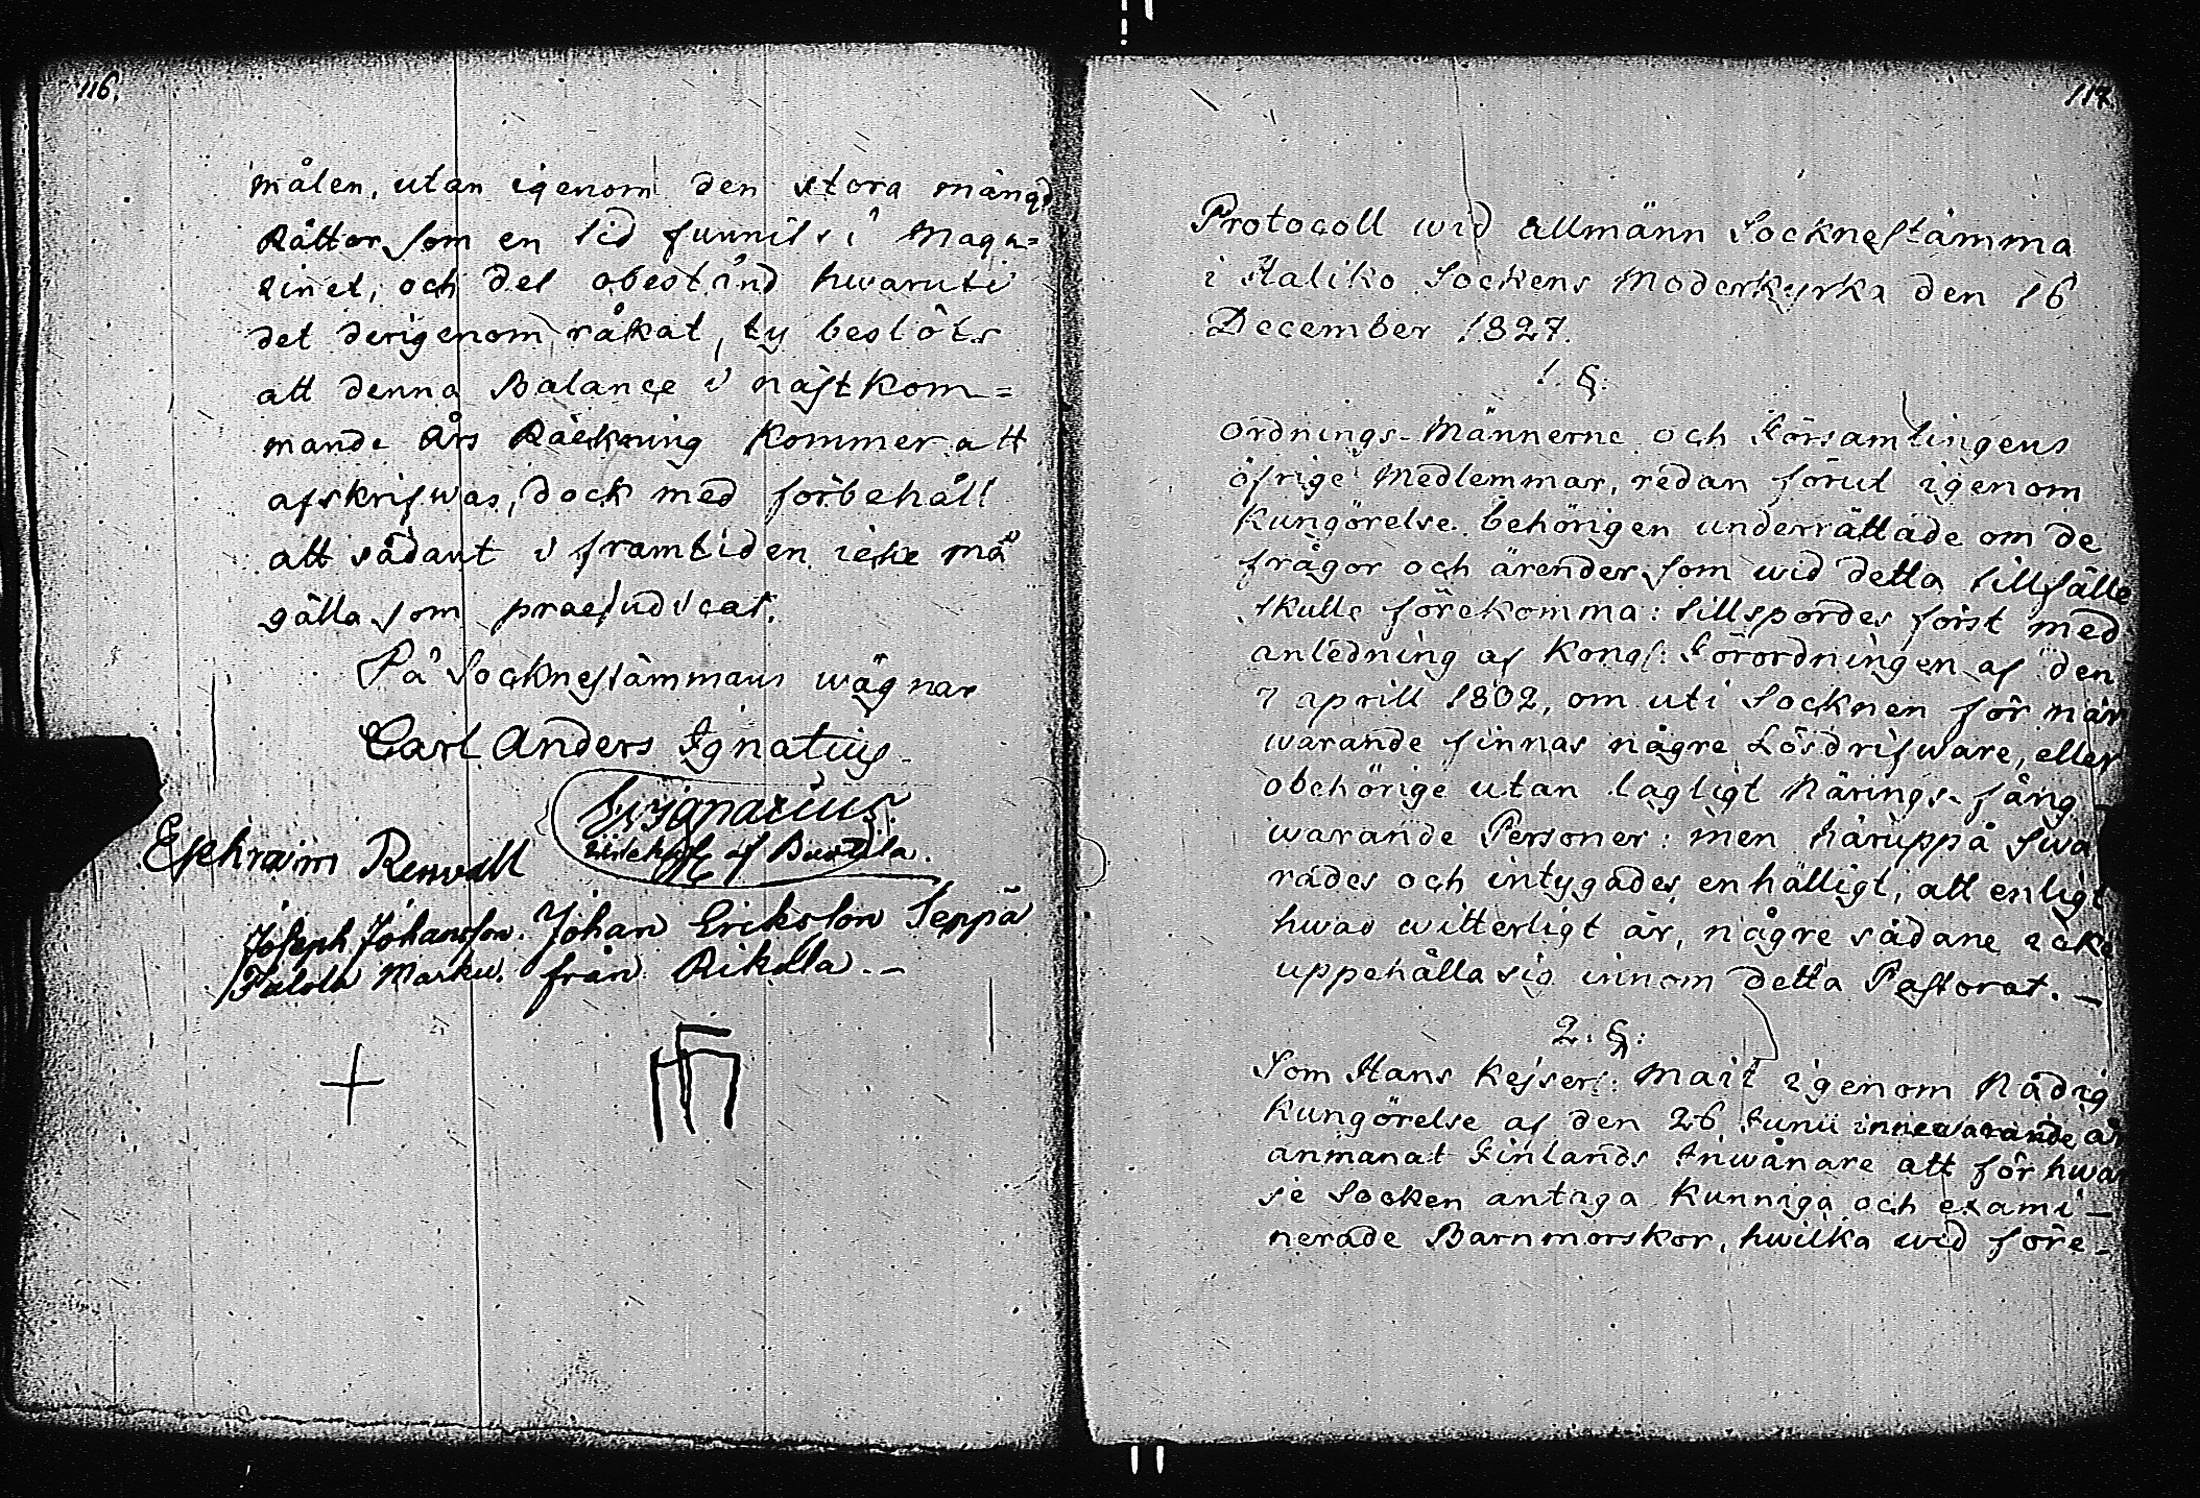 116.
målen, utan igenom den stora mängd
Råttor som en tid funnits i Maga=
zinet, och det obestånd hwaruti
det derigenom råkat, ty beslöts
att denna Balance i näst kom=
mande Års Räckning kommer att
afskrifwas, dock med förbehåll
att sådant i framtiden icke må
gälla som praejudicat.
På Sockneståmmans wägnar
Carl Anders Ignatius
Ephraim Renvall
af
Joseph Johansson. Johan Eriksson Seppä
Marku. från Rikala. -
117
Protocoll wid allmänn Socknestämma
i Haliko Sockens Moderkyrka den 16
December 1827.
1. §.
Ordnings-Männerne och Församlingens
öfrige Medlemmar, redan förut igenom
Kungörelse behörigen underrättade om de
frågor och ärender som wid detta tillfälle
skulle förekomma: tillspordes först med
anledning af Kongl: Förordningen af den
7 aprill 1802, om uti Socknen för när
warande finnas någre Lösdrifware, eller
obehörige utan lagligt Närings-fång
warande Personer: men häruppå Swa
rades och intygades enhälligt, att enligt
hwad witterligt är, någre sådane icke
uppehålla sig innom detta Pastorat. -
2. §.
Som Hans Kejserl: Maij:t igenom Nådig
Kungörelse af den 26 Junii innewarande år
anmanat Finlands Inwånare att för hwar
je Socken antaga Kunniga och exami-
nerade Barnmorskor, hwilka wid före-